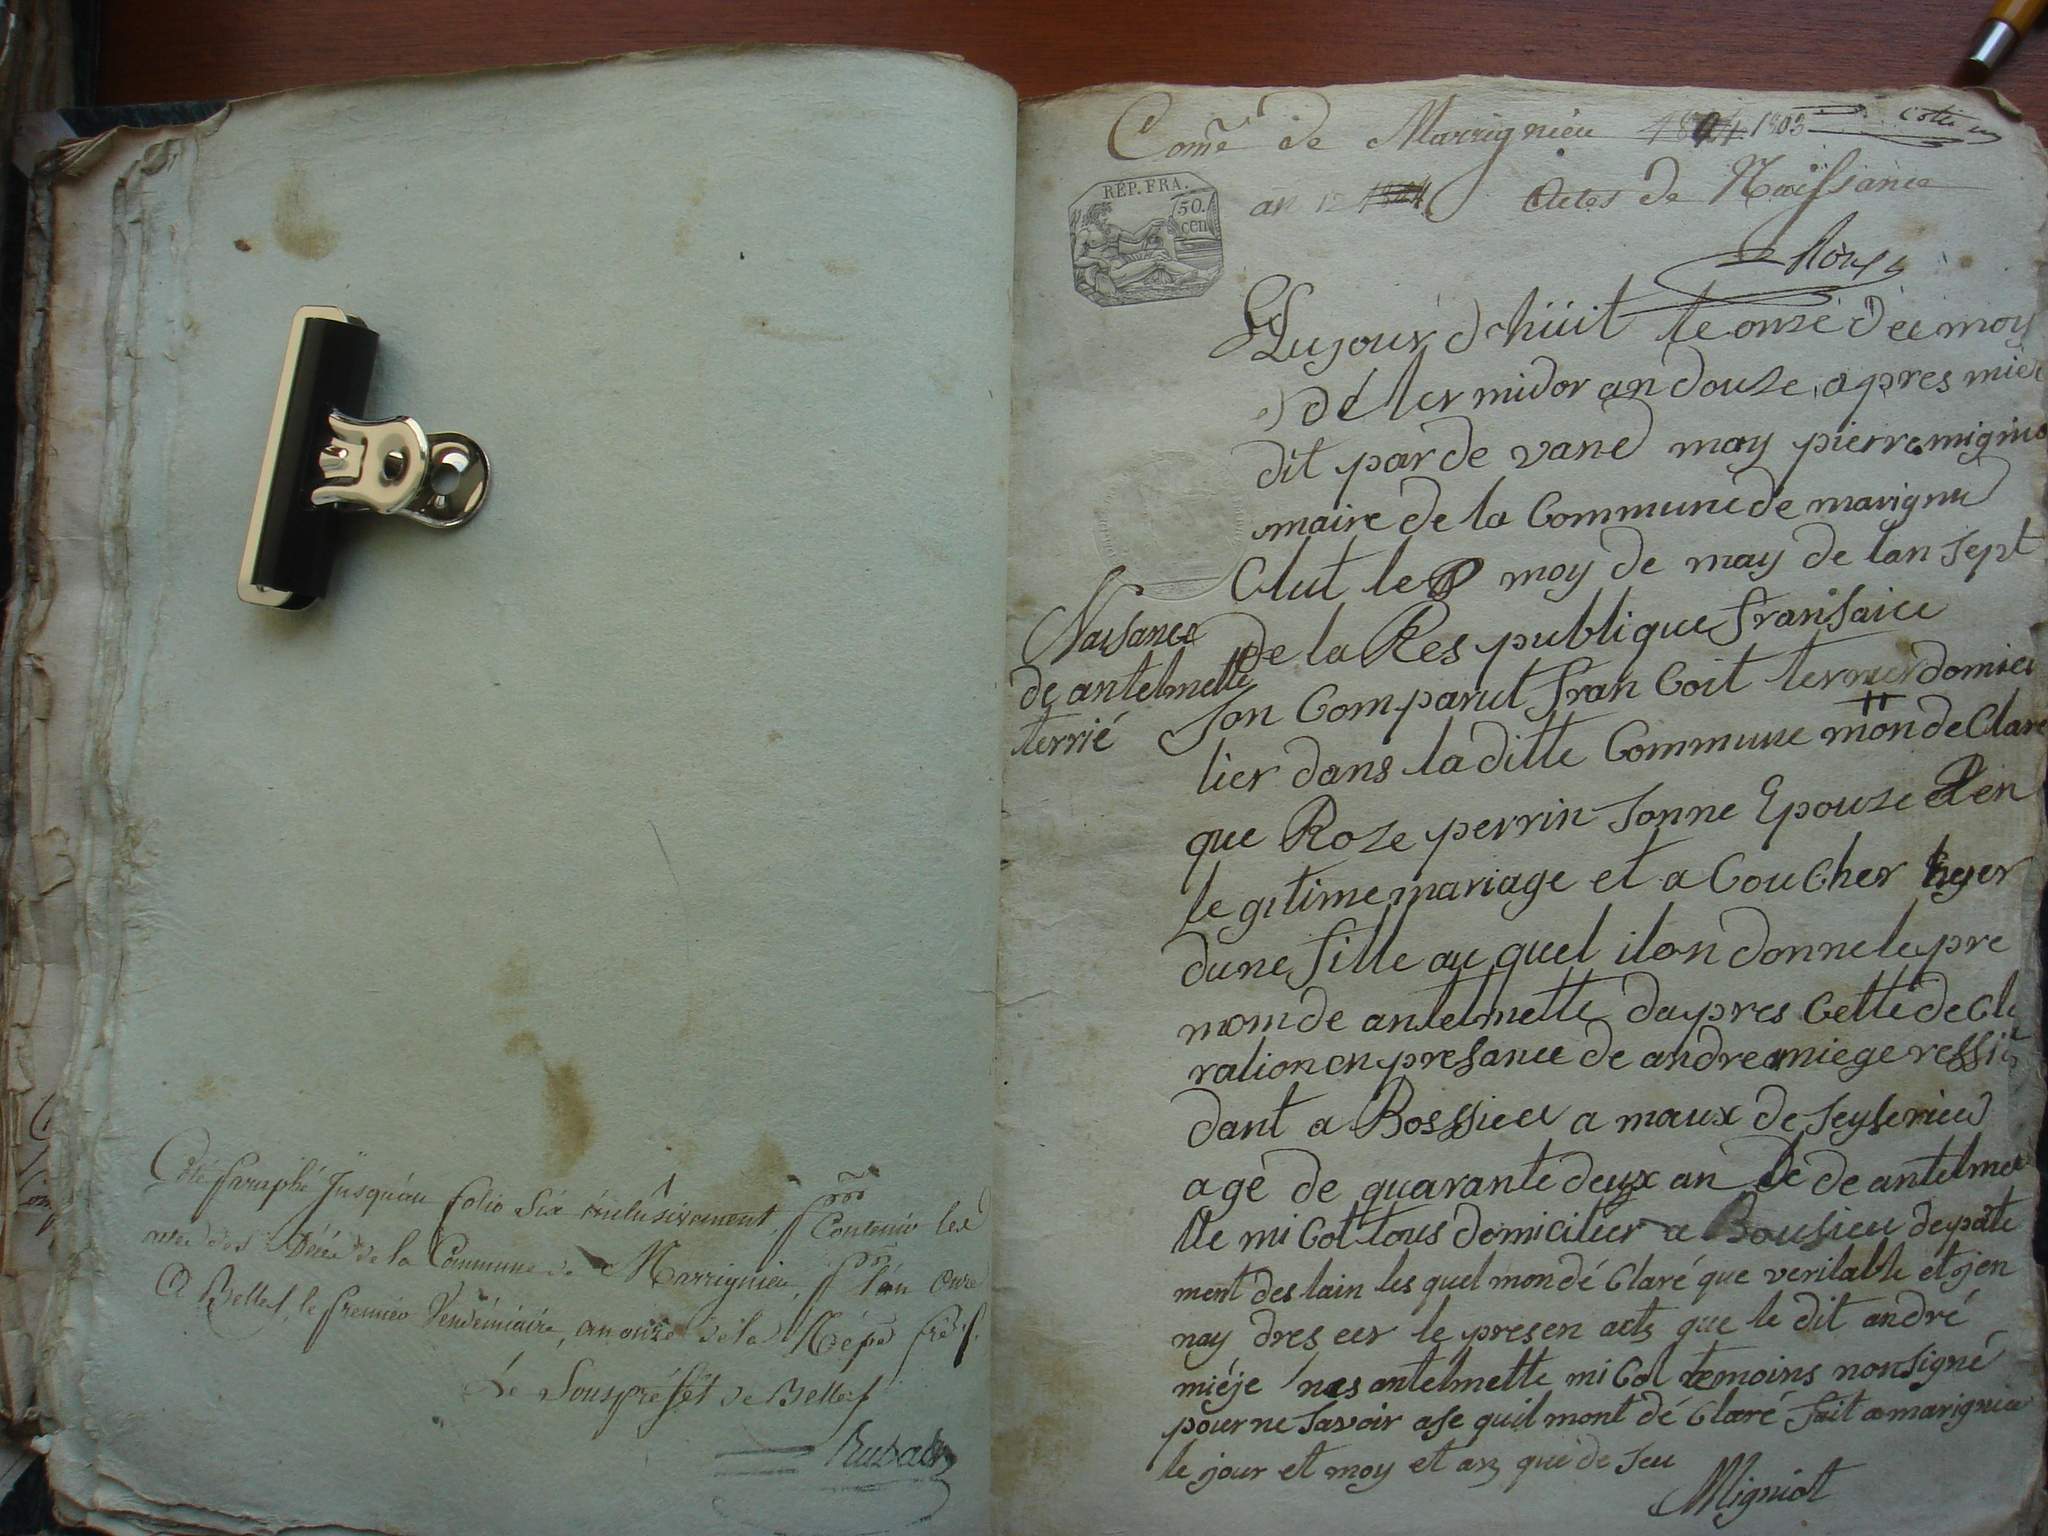 Coté & Paraphé Jusqu'au folio Six inclusivement, pour Contenir les
actes des Décès de la Commune de Marrignieu, pour l'an Onze
A Belley, le premier Vendémiaire, an onze de la Rép. fr.
Le Souspréfet de Belley
Rubat
Come de Marrignieu 1804 1803
REP. FRA.
50.
cen
an 12 1804 Actes de Naissance
Lujour dhuit le onze de ce moy
de termidor an douze apres mier
dit par de vand moy pierre migniot
maire de la Commune de marignu
Elut le moy de may de lan sept
de la Res publique fransaice
Naisance
de antelmette
terrié
son Comparut fran Coit terrier domici
lier dans la ditte Commune mon de Clare
que Roze perrin sonne Epouze et en
legitime mariage et a Coucher hyer
dune fille au quel ilon donne le pre
nom de antelmette dapres Cette de Cla
ration en presance de andre miege ressi
dant a Bossieu a maux de seyserieu
age de quarante deux an et de antelme
tte mi Col tous domicilier a Bousieu depate
ment des lain les quel mon dé Claré que veritable et jen
nay dres eer le presen acts que le dit andré
miéje nes antelmette mi Col temoins non signé
pour ne savoir a se quil mont dé Claré fait a marignieu
le jour et moy et an que de seu
Migniot